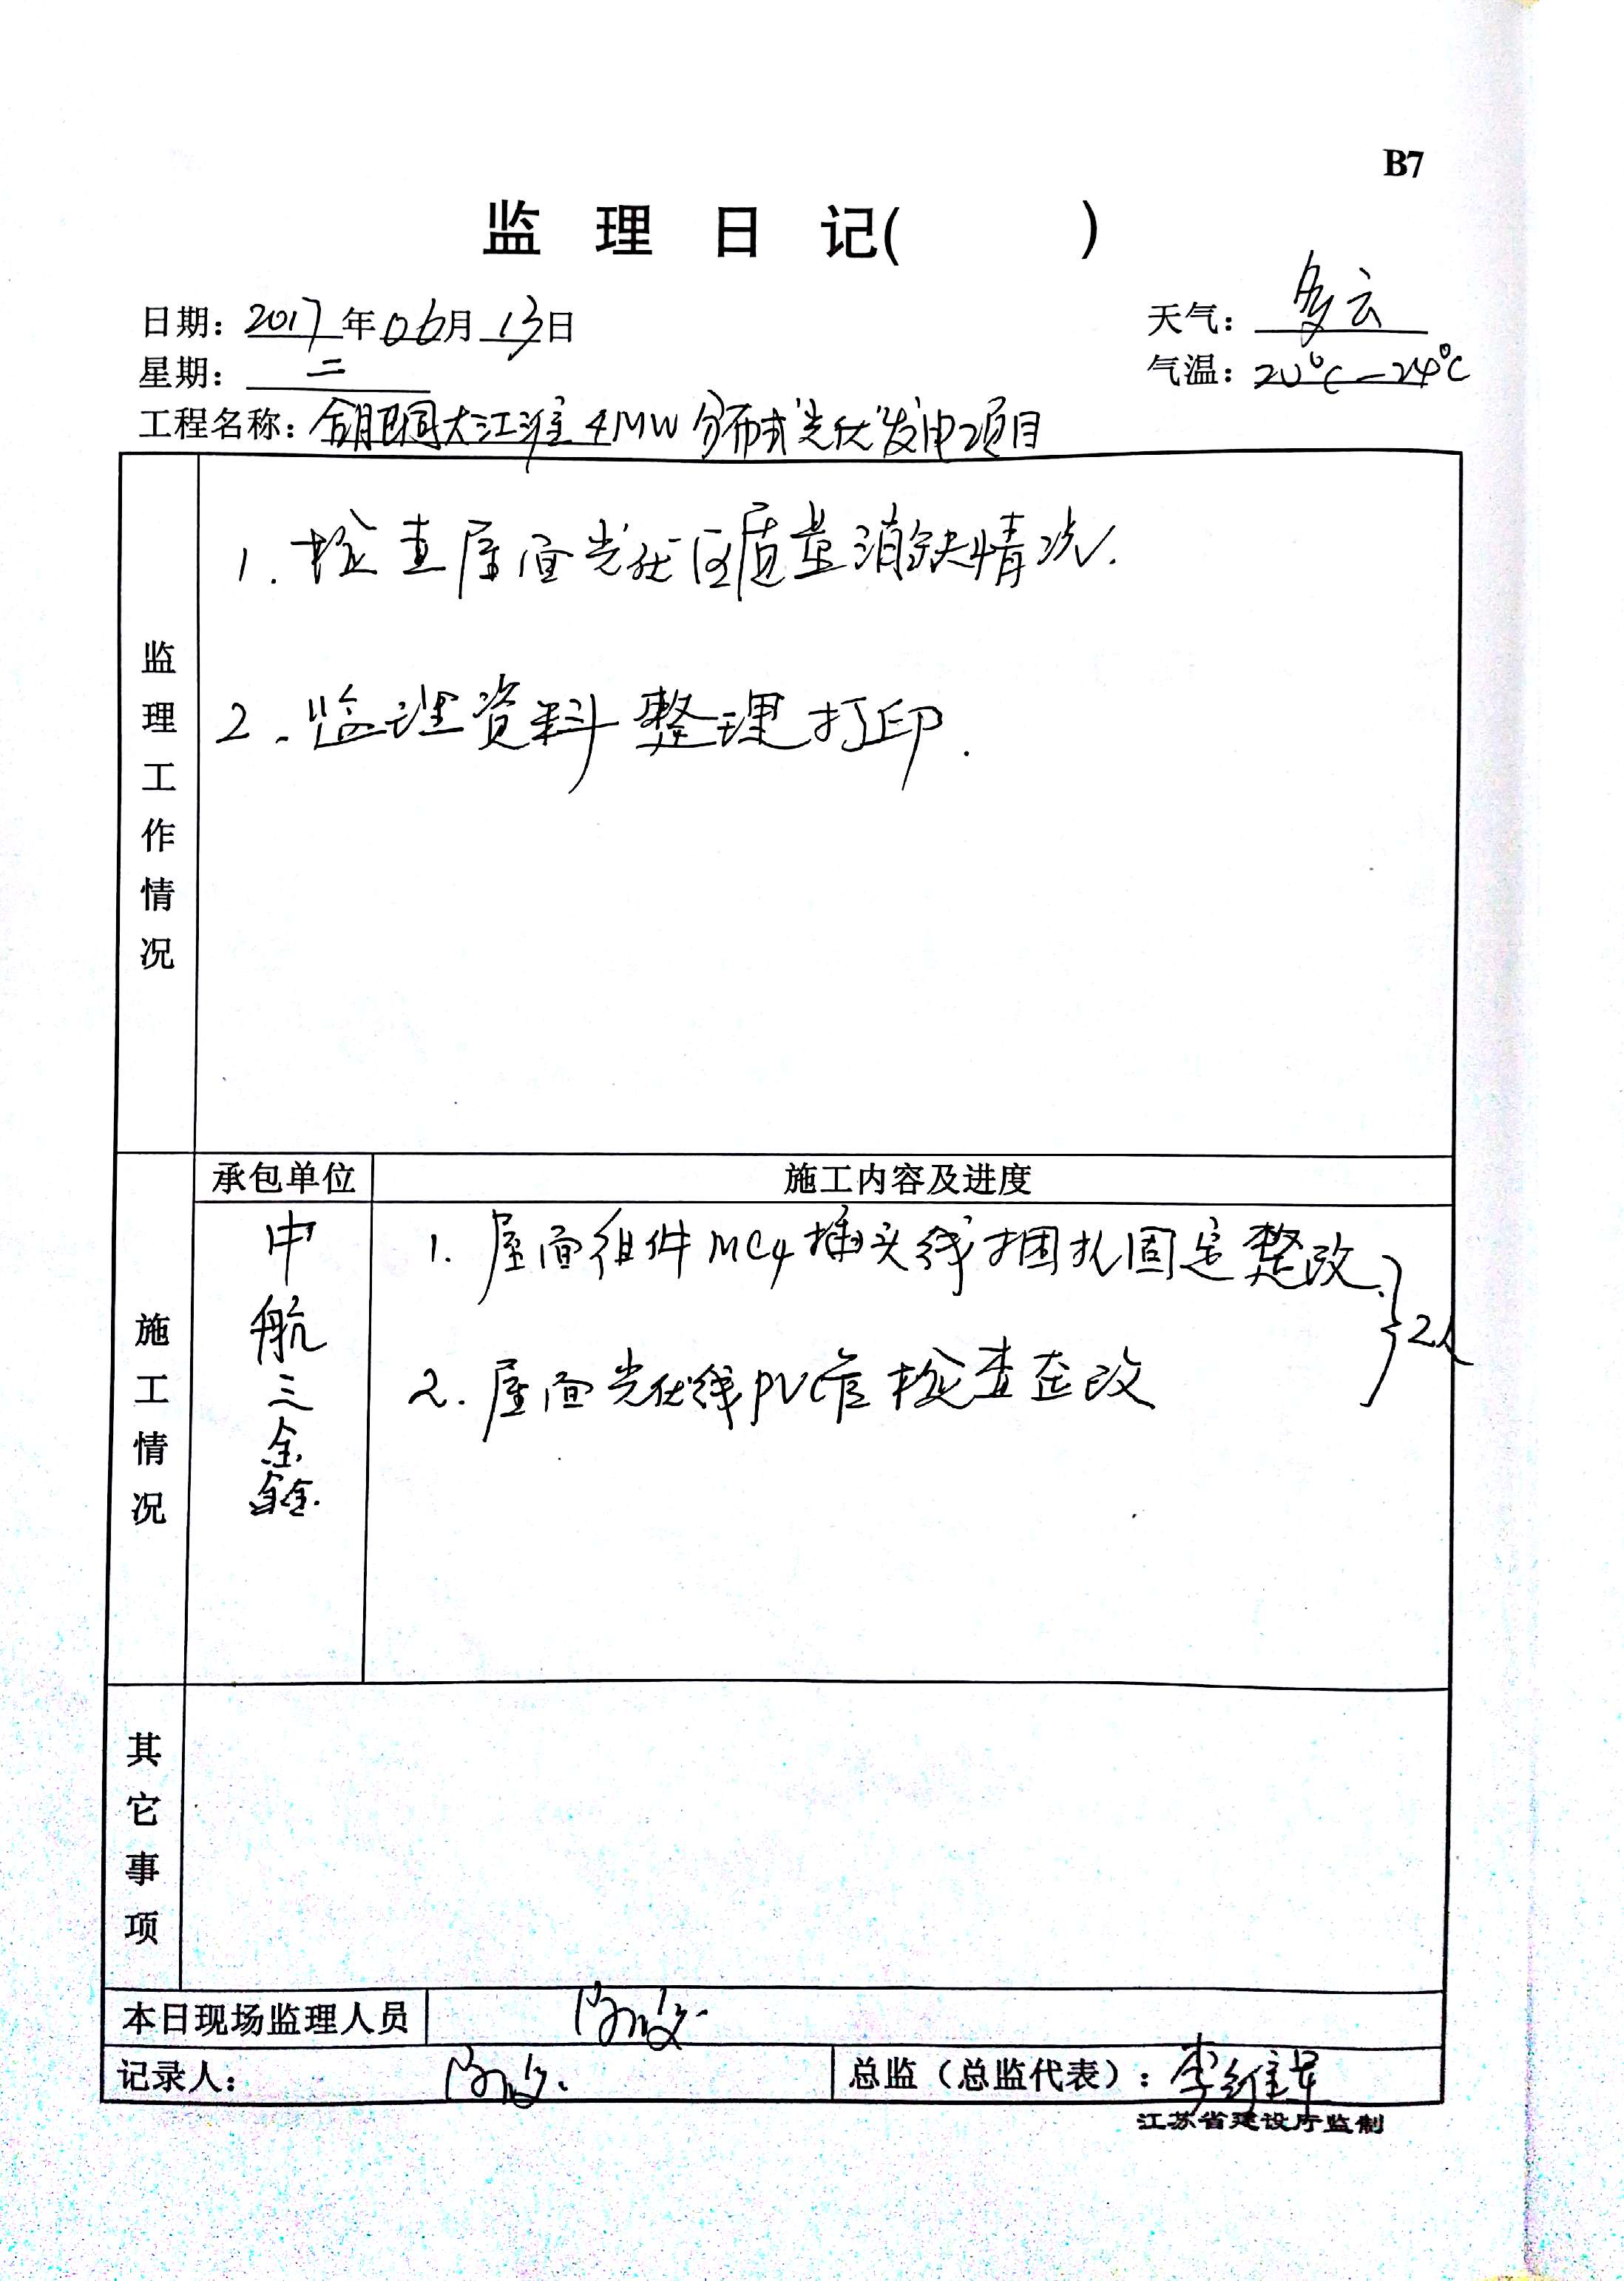 B7
监 理 日 记( )
日期：2017年06月13日
天气：多云
星期：二
气温：20℃—24℃
工程名称：铜大江淮4MW分布式光伏发电项目
监理工作情况
1. 检查屋面光伏区质量消缺情况.
2. 监理资料整理打印.
施工情况
承包单位
施工内容及进度
中航三鑫
1. 屋面组件MC4插头线捆扎固定整改.
2人
2. 屋面光伏线PVC管检查整改
其它事项
本日现场监理人员
记录人：
总监（总监代表）：李维军
江苏省建设厅监制